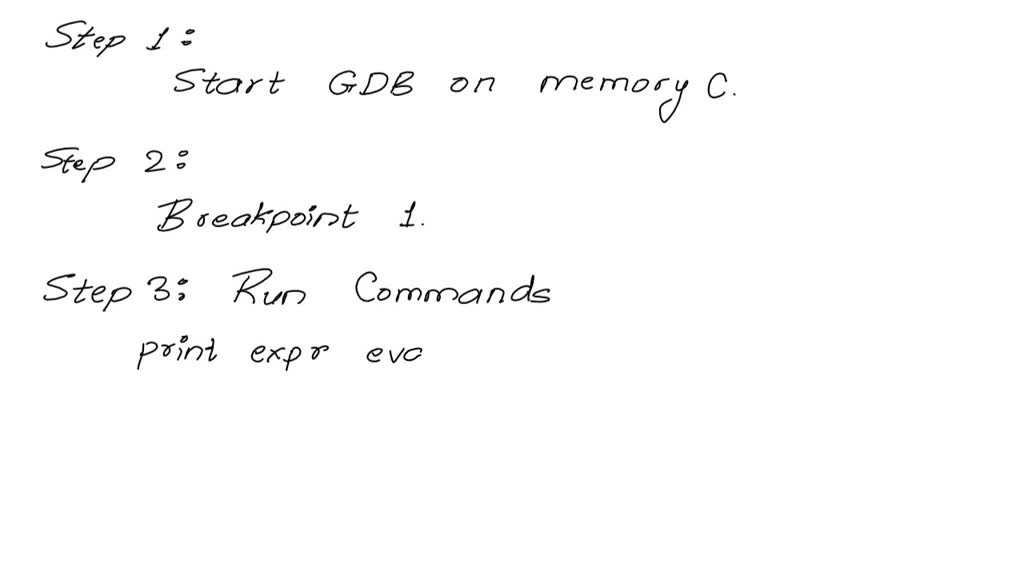 Step 1:
Start GDB on memory C.
Step 2:
Breakpoint 1.
Step 3: Run Commands
print expr eva